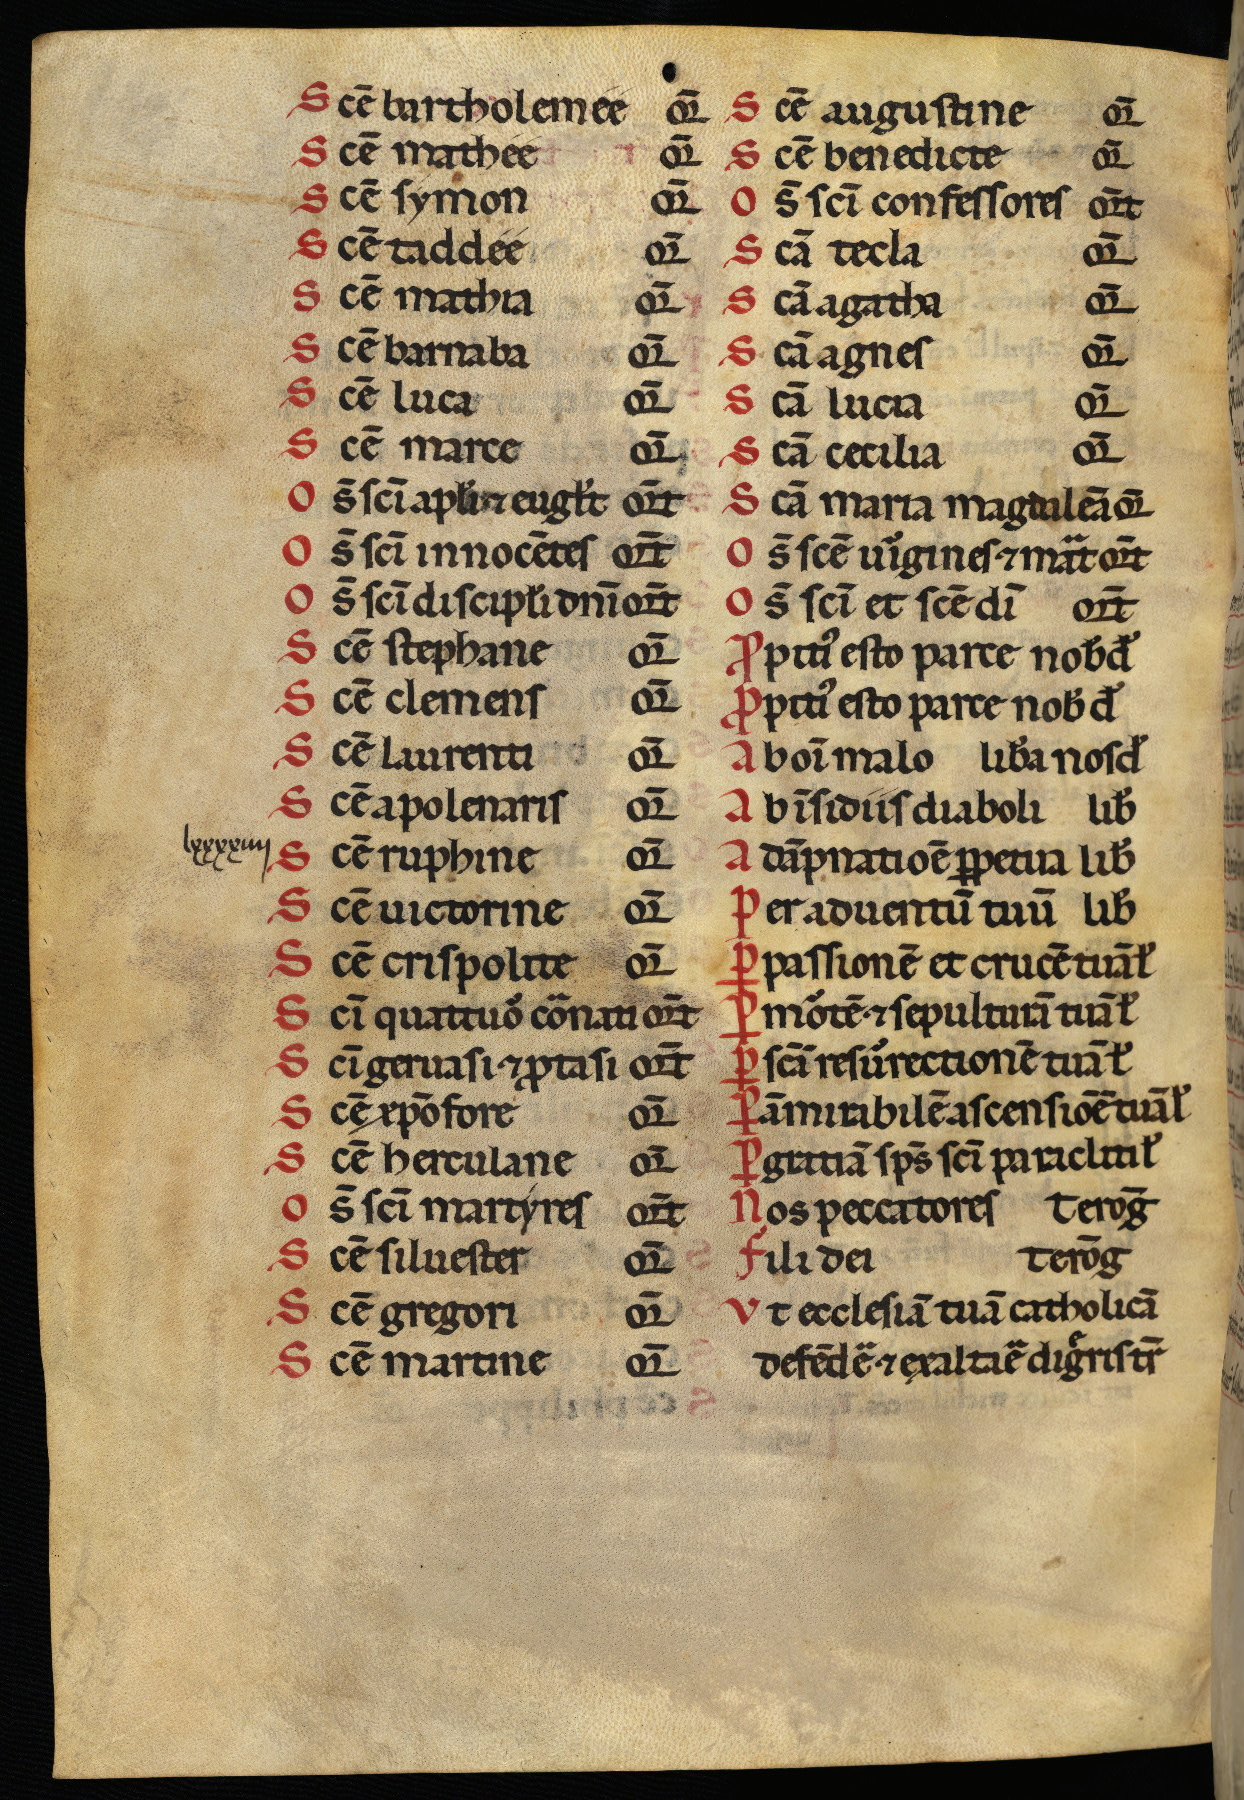 Scē bartholomeē or̄
Scē mathee or̄
Scē symon or̄
Scē taddee or̄
Scē mathia or̄
Scē barnaba or̄
Scē luca or̄
Scē marce or̄
Os̄ sci apl̄i ⁊ eugl̄t or̄t
Os̄ sci innocētes or̄t
Os̄ sci discipl̄i dn̄i or̄t
Scē stephane or̄
Scē clemens or̄
Scē laurenti or̄
Scē apolenaris or̄
lxxxxiiij
Scē ruphine or̄
Scē uictorine or̄
Scē crispolite or̄
Scī quattuo᷑ co᷑nati or̄t
Scī geruasi ⁊ ꝓtasi or̄t
Scē xp̄ofore or̄
Scē herculane or̄
Os̄ scī martyres or̄t
Scē siluester or̄
Scē gregori or̄
Scē martine or̄
Scē augustine or̄
Scē benedicte or̄
Os̄ scī confessores or̄t
Scā tecla or̄
Scā agatha or̄
Scā agnes or̄
Scā lucia or̄
Scā cecilia or̄
Scā maria magdaleā or̄
Os̄ scē uͥgines ⁊ mat̄ or̄t
Os̄ scī et scē dī or̄t
Ꝓpitiꝰ esto parce nob̄ d̄
Ꝓpitiꝰ esto parce nob̄ d̄
Ab oī malo lib̄a nos d̄
Ab īsidiis diaboli lib̄
A dāpnatioē ꝑpetua lib̄
Per aduentū tuū lib̄
Ꝑ passionē et crucē tuā l̄
Ꝑ mo᷑tē ⁊ sepulturā tuā l̄
Ꝑ scā resu᷑rectionē tuā l̄
Ꝑ āmirabilē ascensioē tuā l̄
Ꝑ gratiā sp̄s scī paracliti l̄
Nos peccatores Teroḡ
Fili dei teroḡ
Vt ecclesiā tuā catholicā
defēde᷑ ⁊ exaltae᷑ digr̄is tr̄